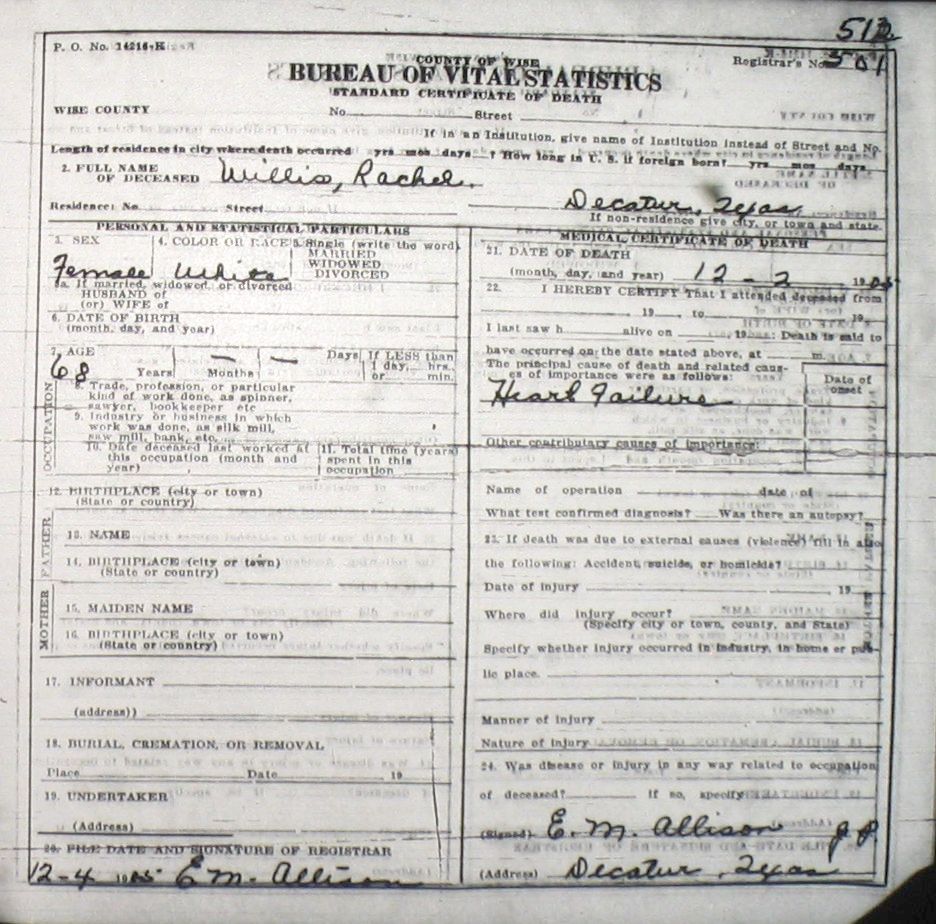 512
P. O. No. 14214-K
Registrar's No. 501
COUNTY OF WISE
BUREAU OF VITAL STATISTICS
STANDARD CERTIFICATE OF DEATH
WISE COUNTY No. Street
If in an Institution, give name of Institution instead of Street and No.
Length of residence in city where death occurred yrs mos days ? How long in U. S. if foreign born? yrs mos days
2. FULL NAME
OF DECEASED Willis, Rachel.
Residence: No. Street Decatur, Texas
If non-residence give city, or town and state
PERSONAL AND STATISTICAL PARTICULARS
3. SEX
Female
4. COLOR OR RACE
White
5. Single (write the word)
MARRIED
WIDOWED
DIVORCED
5a. If married, widowed, or divorced
HUSBAND of
(or) WIFE of
6. DATE OF BIRTH
(month, day, and year)
7. AGE
68 Years — Months — Days If LESS than
1 day, hrs.
or min.
OCCUPATION
8. Trade, profession, or particular
kind of work done, as spinner,
sawyer, bookkeeper etc
9. Industry or business in which
work was done, as silk mill,
saw mill, bank, etc.
10. Date deceased last worked at
this occupation (month and
year)
11. Total time (years)
spent in this
occupation
12. BIRTHPLACE (city or town)
(State or country)
FATHER
13. NAME
14. BIRTHPLACE (city or town)
(State or country)
MOTHER
15. MAIDEN NAME
16. BIRTHPLACE (city or town)
(State or country)
17. INFORMANT
(address))
18. BURIAL, CREMATION, OR REMOVAL
Place Date 19
19. UNDERTAKER
(Address)
20. FILE DATE AND SIGNATURE OF REGISTRAR
12-4 19 E. M. Allison
MEDICAL CERTIFICATE OF DEATH
21. DATE OF DEATH
(month, day, and year) 12 - 2 19
22. I HEREBY CERTIFY That I attended deceased from
19 , to 19
I last saw h alive on , 19 . Death is said to
have occurred on the date stated above, at m.
The principal cause of death and related caus-
es of importance were as follows:
Date of
onset
Heart Failure
Other contributary causes of importance:
Name of operation date of
What test confirmed diagnosis? Was there an autopsy?
23. If death was due to external causes (violence) fill in also
the following: Accident, suicide, or homicide?
Date of injury 19
Where did injury occur?
(Specify city or town, county, and State)
Specify whether injury occurred in industry, in home or pub-
lic place.
Manner of injury
Nature of injury
24. Was disease or injury in any way related to occupation
of deceased? If so, specify
(Signed) E. M. Allison J. P.
(Address) Decatur, Texas